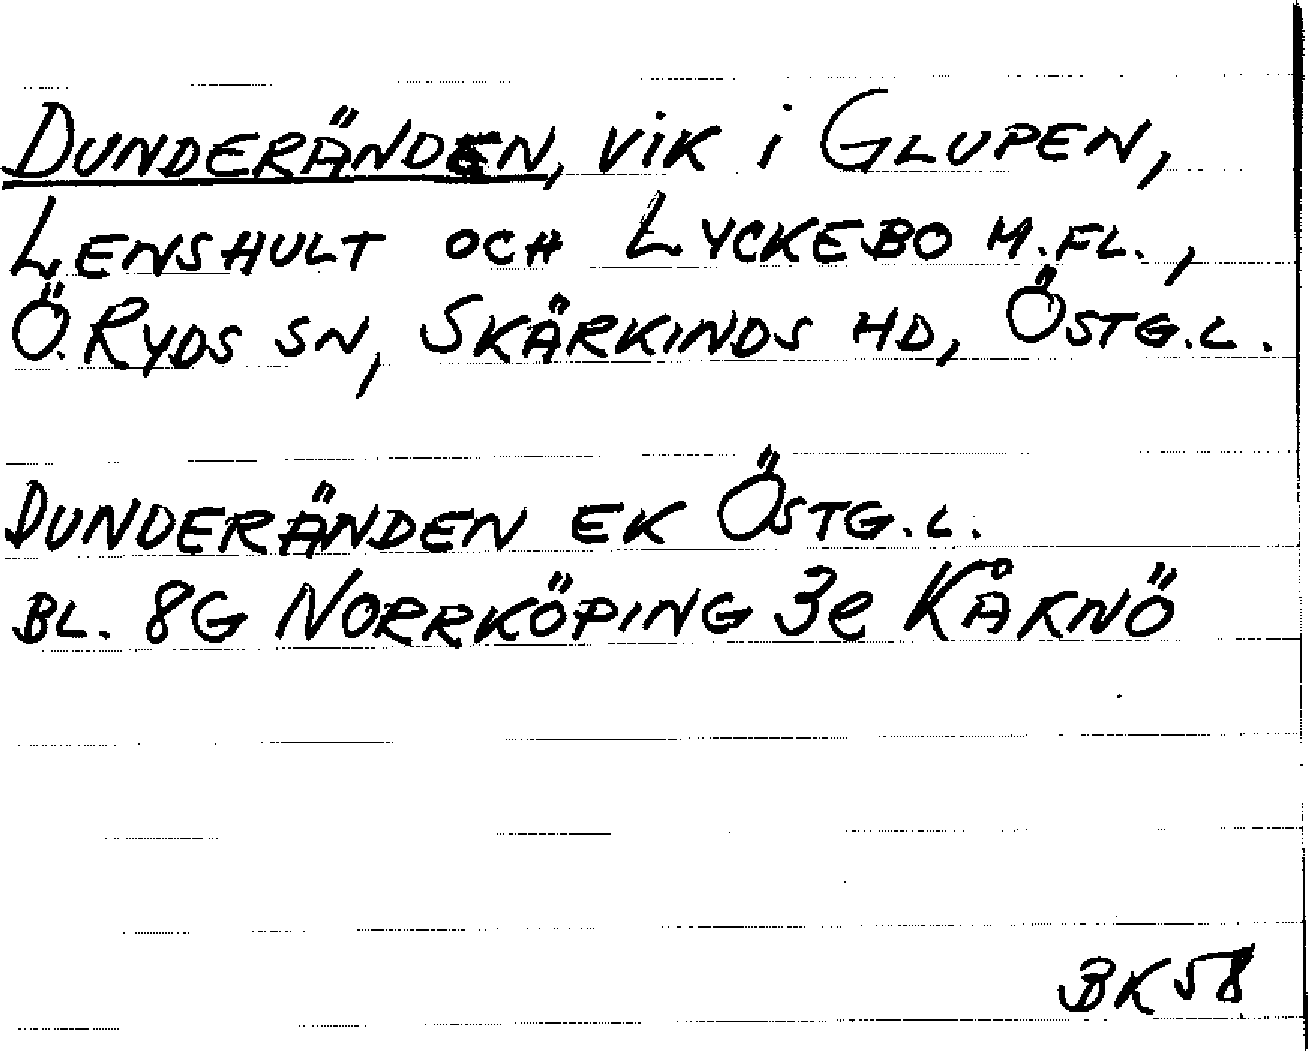 DUNDERÄNDEN, VIK I GLUPEN,
LENSHULT OCH LYCKEBO M.FL.,
Ö. RYDS SN, SKÄRKINDS HD, ÖSTG.L.
DUNDERÄNDEN EK ÖSTG.L.
BL. 8G NORRKÖPING 3e KÅKNÖ
BK 58